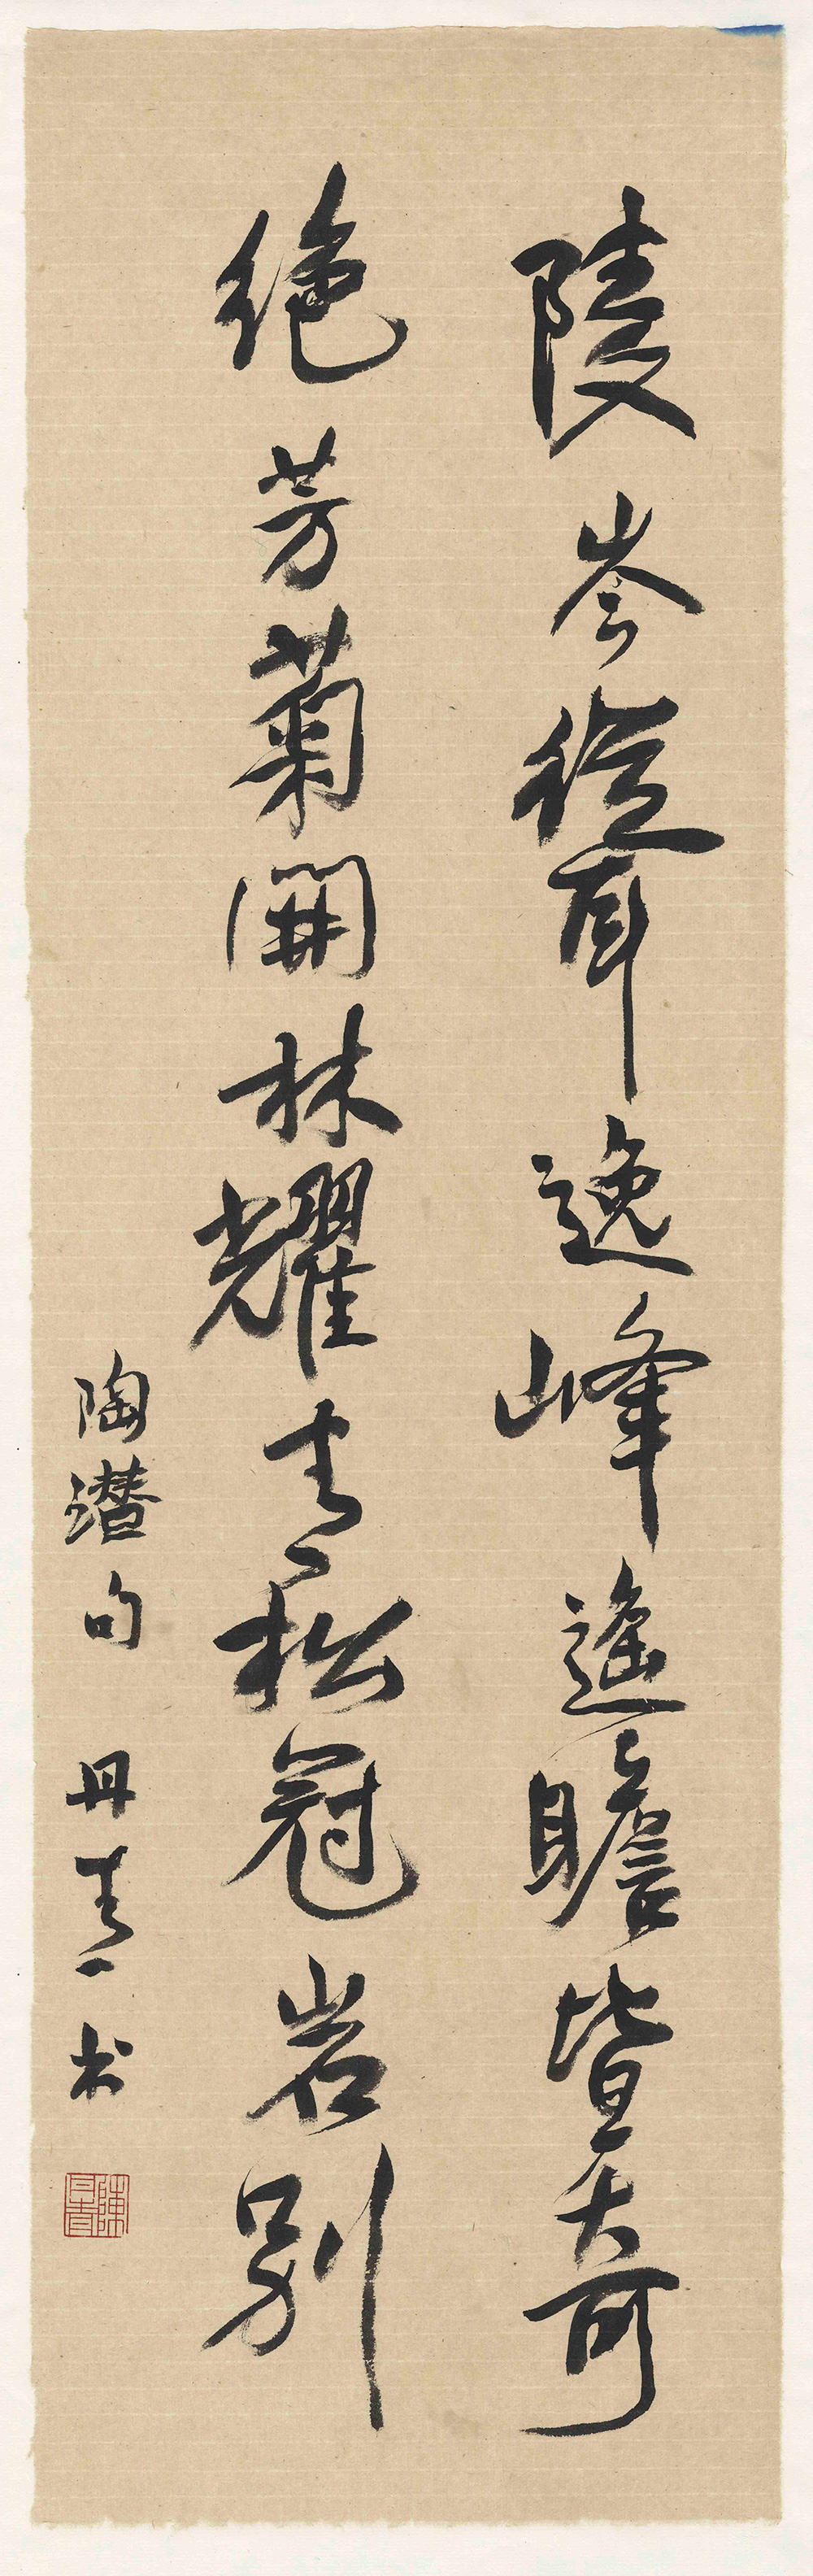 陵岑聳逸峰遙瞻皆奇
絶芳菊開林耀青松冠岩列
陶潛句 丹青書
陳丹青